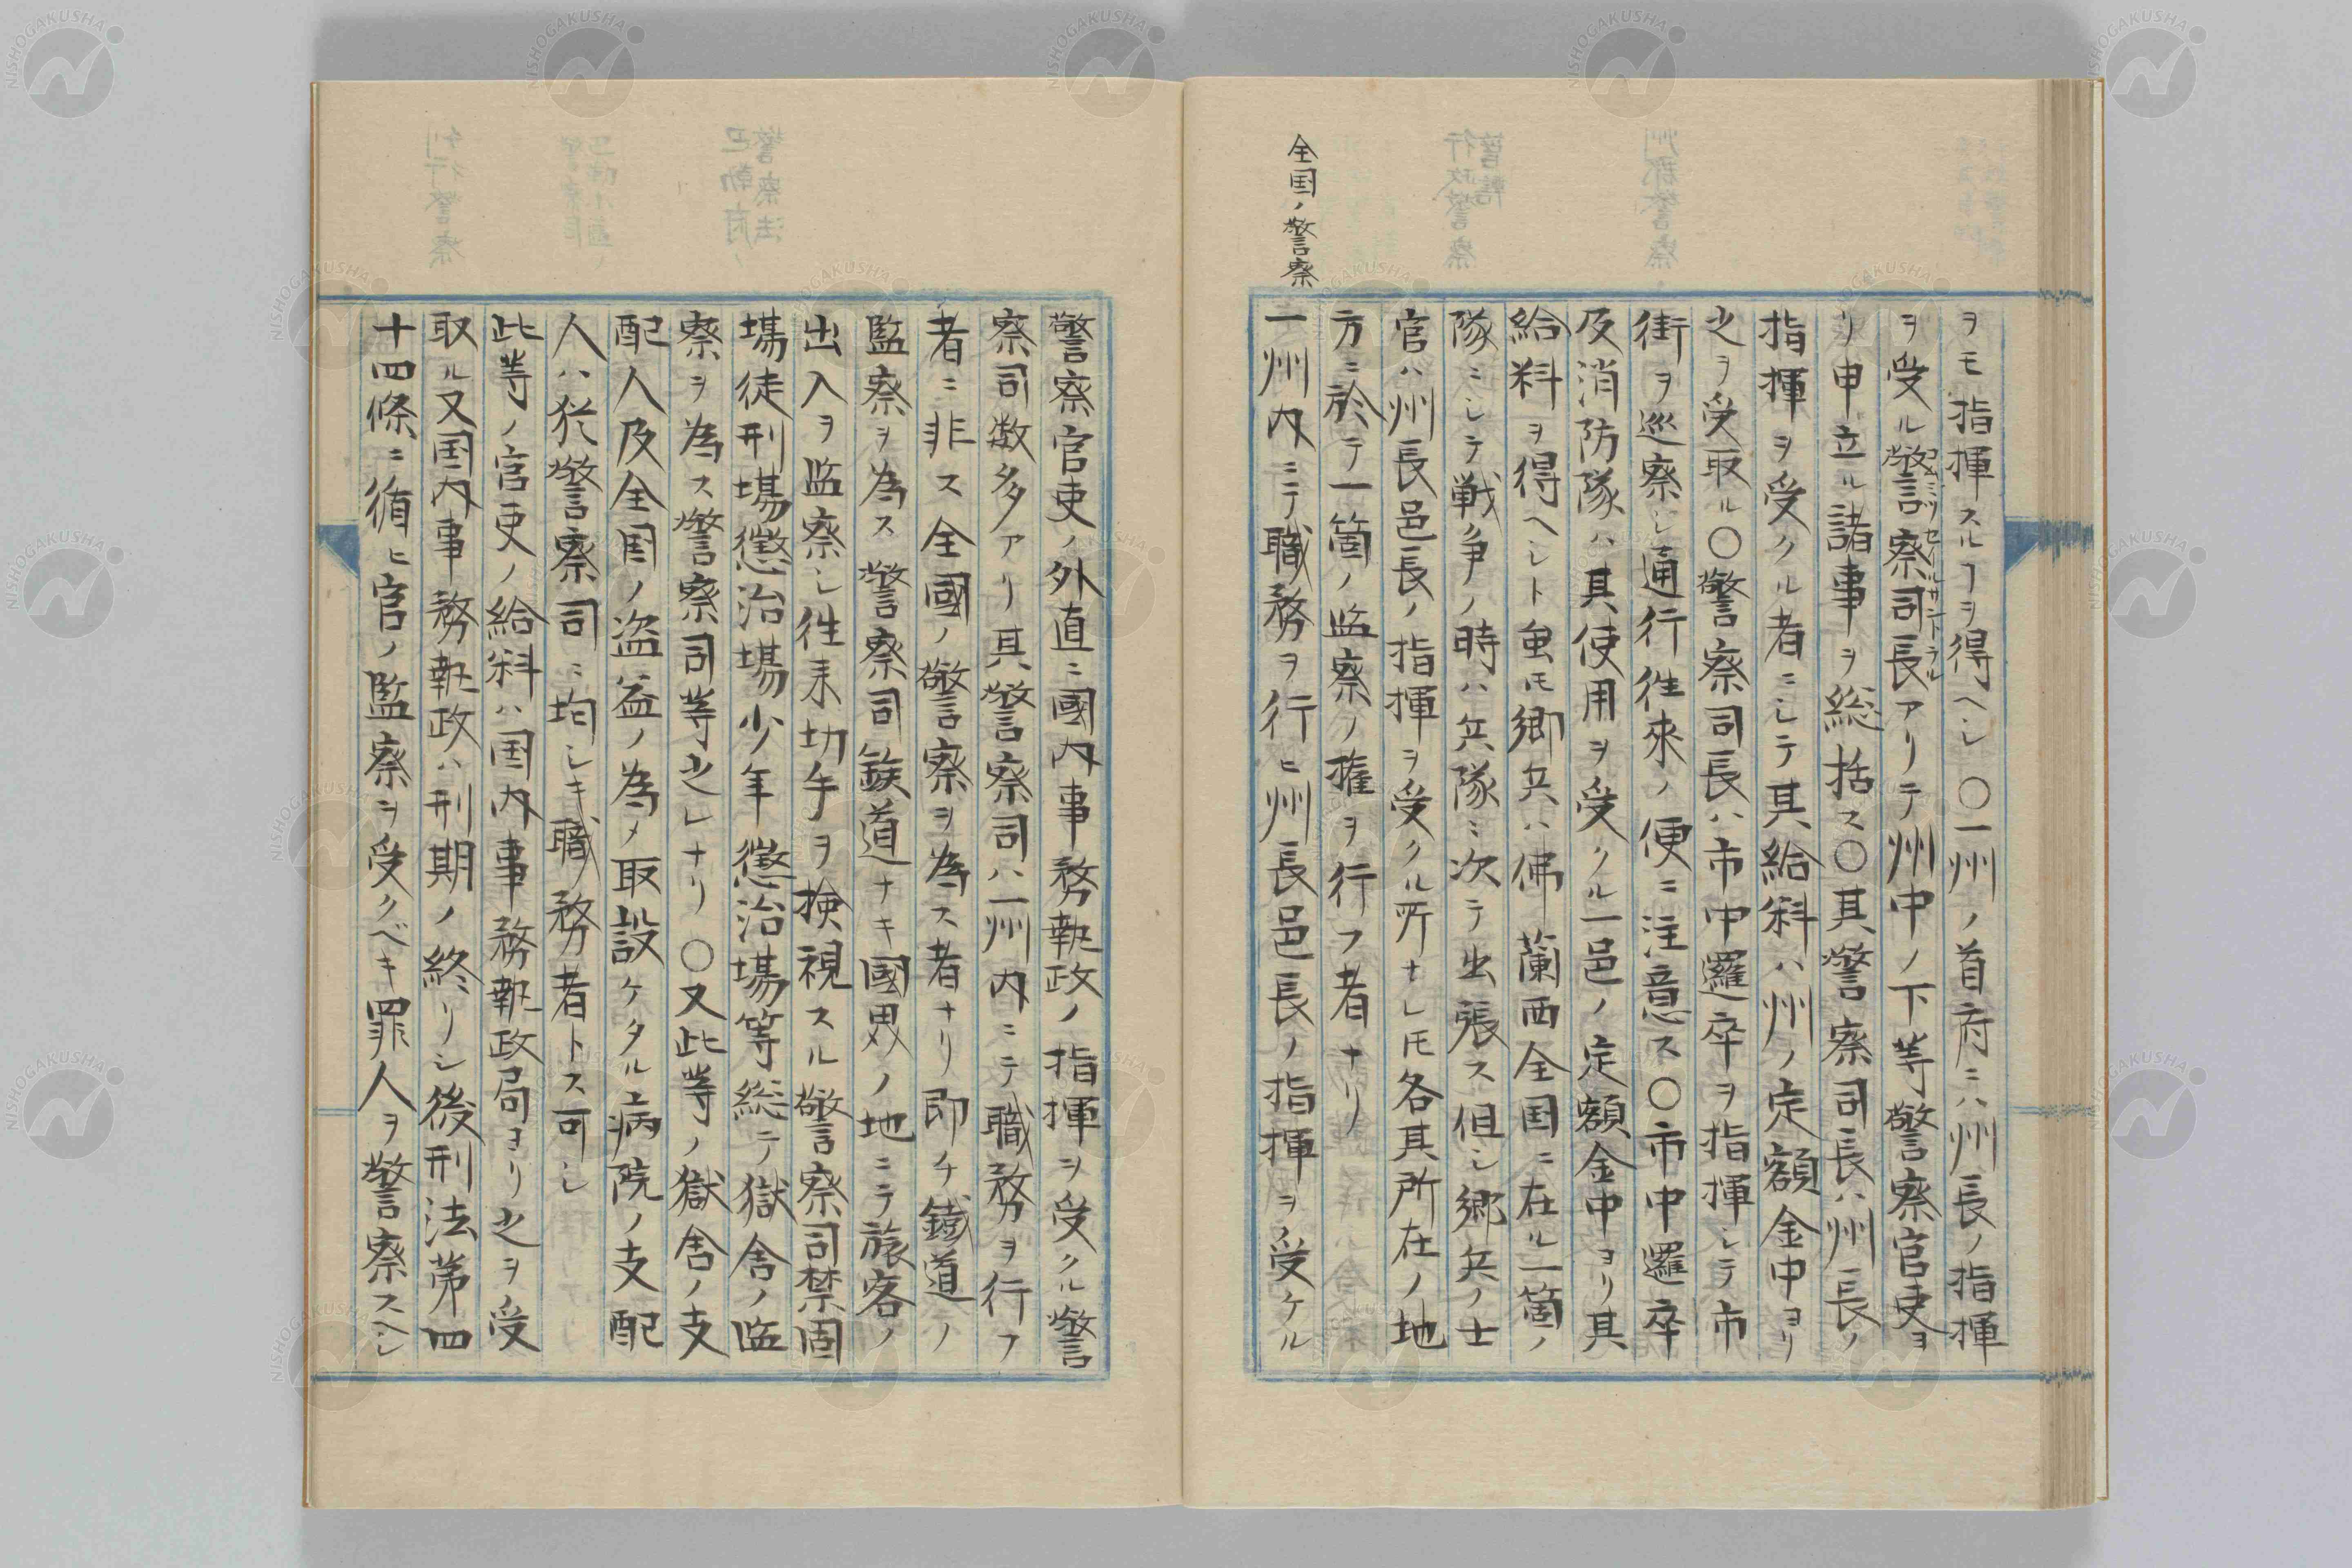 ヲモ指揮スルヿヲ得ヘシ○一州ノ首府ニハ州長ノ指揮
ヲ受ル警察司長アリテ州中ノ下等警察官吏ヨ
コムミツセイルサントラル
リ申立ル諸事ヲ総括ス○其警察司長ハ州長ノ
指揮ヲ受クル者ニシテ其給料ハ州ノ定額金中ヨリ
之ヲ受取ル○警察司長ハ市中邏卒ヲ指揮シテ市
街ヲ巡察シ通行往來ノ便ニ注意ス○市中邏卒
及消防隊ハ其使用ヲ受クル一邑ノ定額金中ヨリ其
給料ヲ得ヘシト虽𪜈郷兵ハ佛蘭西全国ニ在ル一箇ノ
隊ニシテ戦争ノ時ハ兵隊ニ次テ出張ス但シ郷兵ノ士
官ハ州長邑長ノ指揮ヲ受クル所ナレ𪜈各其所在ノ地
方ニ於テ一箇ノ監察ノ権ヲ行フ者ナリ
全国ノ警察
一州内ニテ職務ヲ行ヒ州長邑長ノ指揮ヲ受ケル
警察官吏ノ外直ニ國内事務執政ノ指揮ヲ受クル警
察司数多アリ其警察司ハ一州内ニテ職務ヲ行フ
者ニ非ス全國ノ警察ヲ為ス者ナリ即チ鐵道ノ
監察ヲ為ス警察司鉄道ナキ國界ノ地ニテ旅客ノ
出入ヲ監察シ徃来切手ヲ検視スル警察司禁固
場徒刑場懲治場少年懲治場等総テ獄舎ノ監
察ヲ為ス警察司等之レナリ○又此等ノ獄舎ノ支
配人及全国ノ盗益ノ為メ取設ケタル病院ノ支配
人ハ猶警察司ニ均シキ職務者トス可シ
此等ノ官吏ノ給料ハ国内事務執政局ヨリ之ヲ受
取ル又国内事務執政ハ刑期ノ終リシ後刑法第四
十四條ニ循ヒ官ノ監察ヲ受クベキ罪人ヲ警察スヘシ